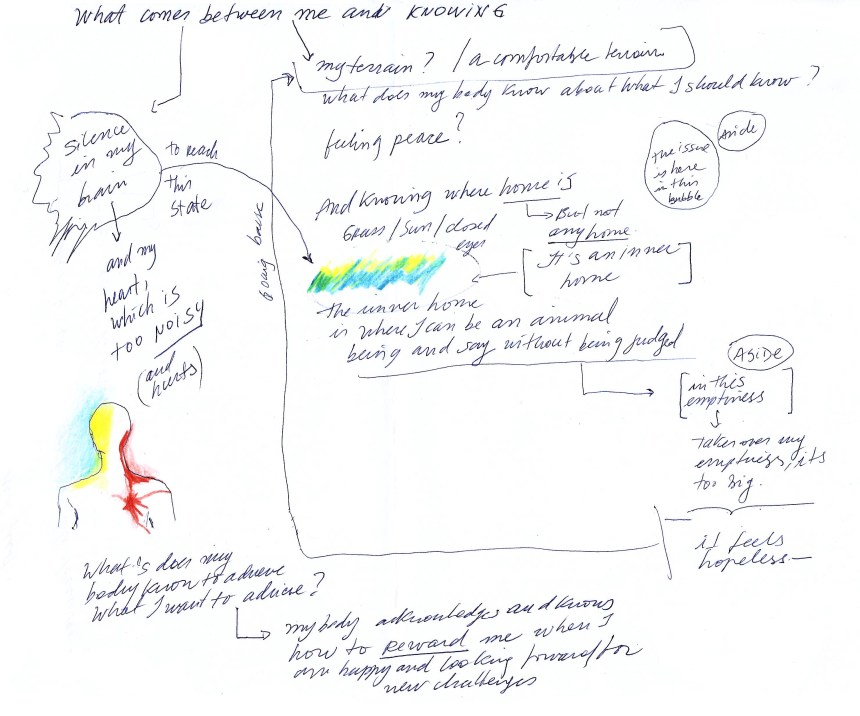 What comes between me and KNOWING
my terrain? / a comfortable terrain
what does my body know about what I should know?
feeling peace?
Silence
in my
brain
to reach
this
state
and my
heart,
which is
too NOISY
(and
hurts)
going
And Knowing where home is
But not
any home
Grass / Sun / closed
eyes
It's an inner
home
the issue
is here
in this
bubble
Aside
the inner home
is where I can be an animal
being and say without being judged
ASIDE
in this
emptiness
takes over my
emptiness, its
too big.
it feels
hopeless—
What's does my
body know to achieve
what I want to achieve?
my body acknowledges and knows
how to reward me when I
am happy and looking forward for
new challenges